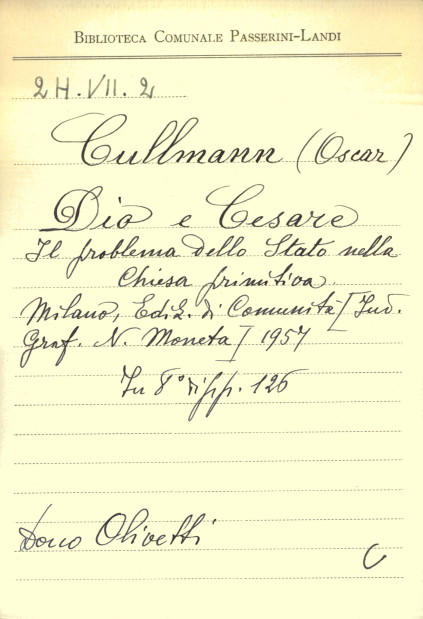 BIBLIOTECA COMUNALE PASSERINI-LANDI
2H.VII.2
Cullmann (Oscar)
Dio e Cesare
Il problema dello Stato nella
Chiesa primitiva.
Milano, Ediz. di Comunità [Ind.
Graf. N. Moneta] 1957
In 8° di pp. 126
Dono Olivetti
C